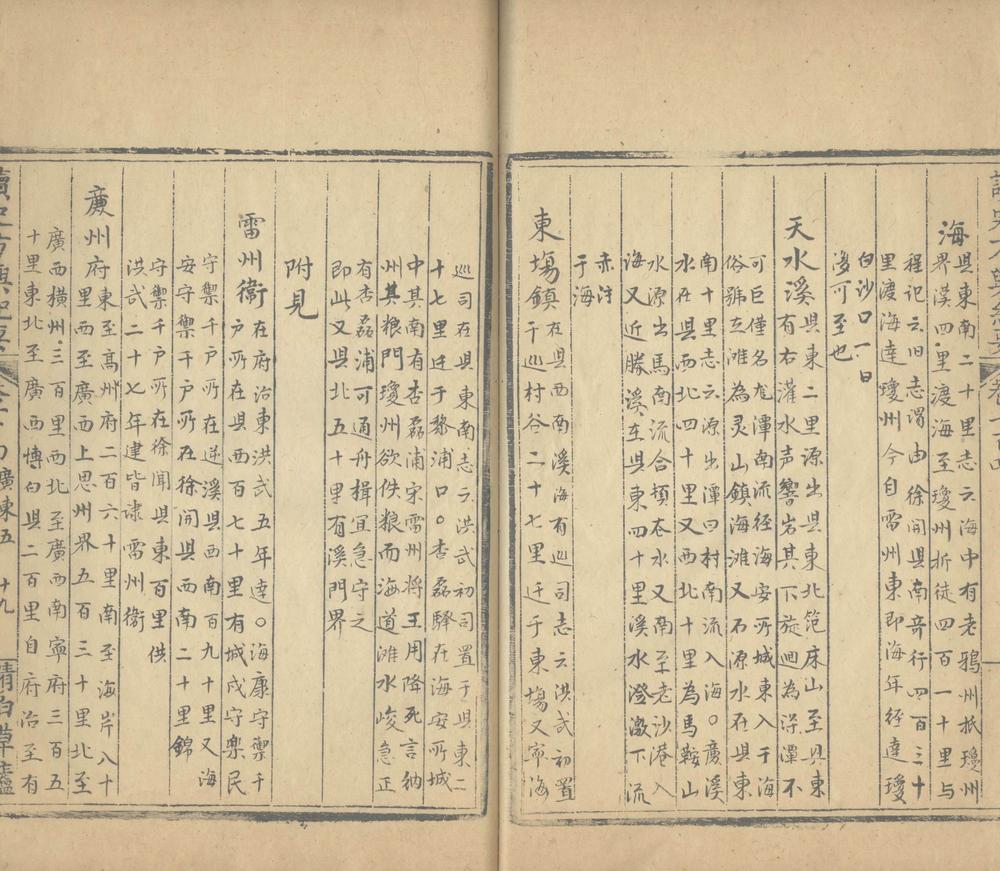 海
具東南二十里志云海中有老鴉州抵瓊州
界漠四里渡海至瓊州折徒四百一十里与
程记云旧志谓由徐聞具南音行四百三十
里渡海達瓊州今自雷州東即海年径達瓊
白沙口一日
渉可至也
天水溪
具東二里源出具東北笵床山至具東
有右灌水声響岩其下旋迴為深潭不
可巨僅名龙潭南流径海安所城東入于海
俗號立滩為灵山鎮海滩又石源水在具東
南十里志云源出潭曰村南流入海〇廣溪
水在具西北四十里又西北十里為馬鞍山
水源出馬南流合頓水又南至老沙港入
海又近勝溪在具東四十里溪水澄澈下流
于海
東塲鎮
在具西南溪海有巡司志云洪武初置
于巡村谷二十七里迁于東塲又寧海
巡司在具東南志云洪武初司置于具東二
十七里迁于黎浦口〇杏磊驛在海安所城
中其南有杏磊浦宋雷州将王用降死言納
州其粮門瓊州欲佚粮而海道滩水峻急正
有杏磊浦可通舟楫宜急守之
即此又具北五十里有溪門界
附見
雷州衛
在府治東洪武五年建〇海康守禦千
户所在具西百七十里有城戍守樂民
守禦千户所在逆溪具西南百九十里又海
安守禦千户所在徐闻具西南二十里錦
守禦千户所在徐聞具東百里俱
洪武二十七年建皆隶雷州衛
亷州府
東至高州府二百六十里南至海岸八十
里西至廣西上思州界五百三十里北至
廣西横州三百里西北至廣西南寧府三百五
十里東北至廣西博白具二百里自府治至有
讀史方輿紀要 廣東五 十九